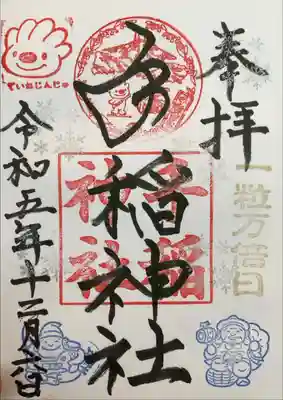 奉拝
一粒万倍日
手稲神社
手稲
神社
令和五年十二月六日
ていねじんじゃ